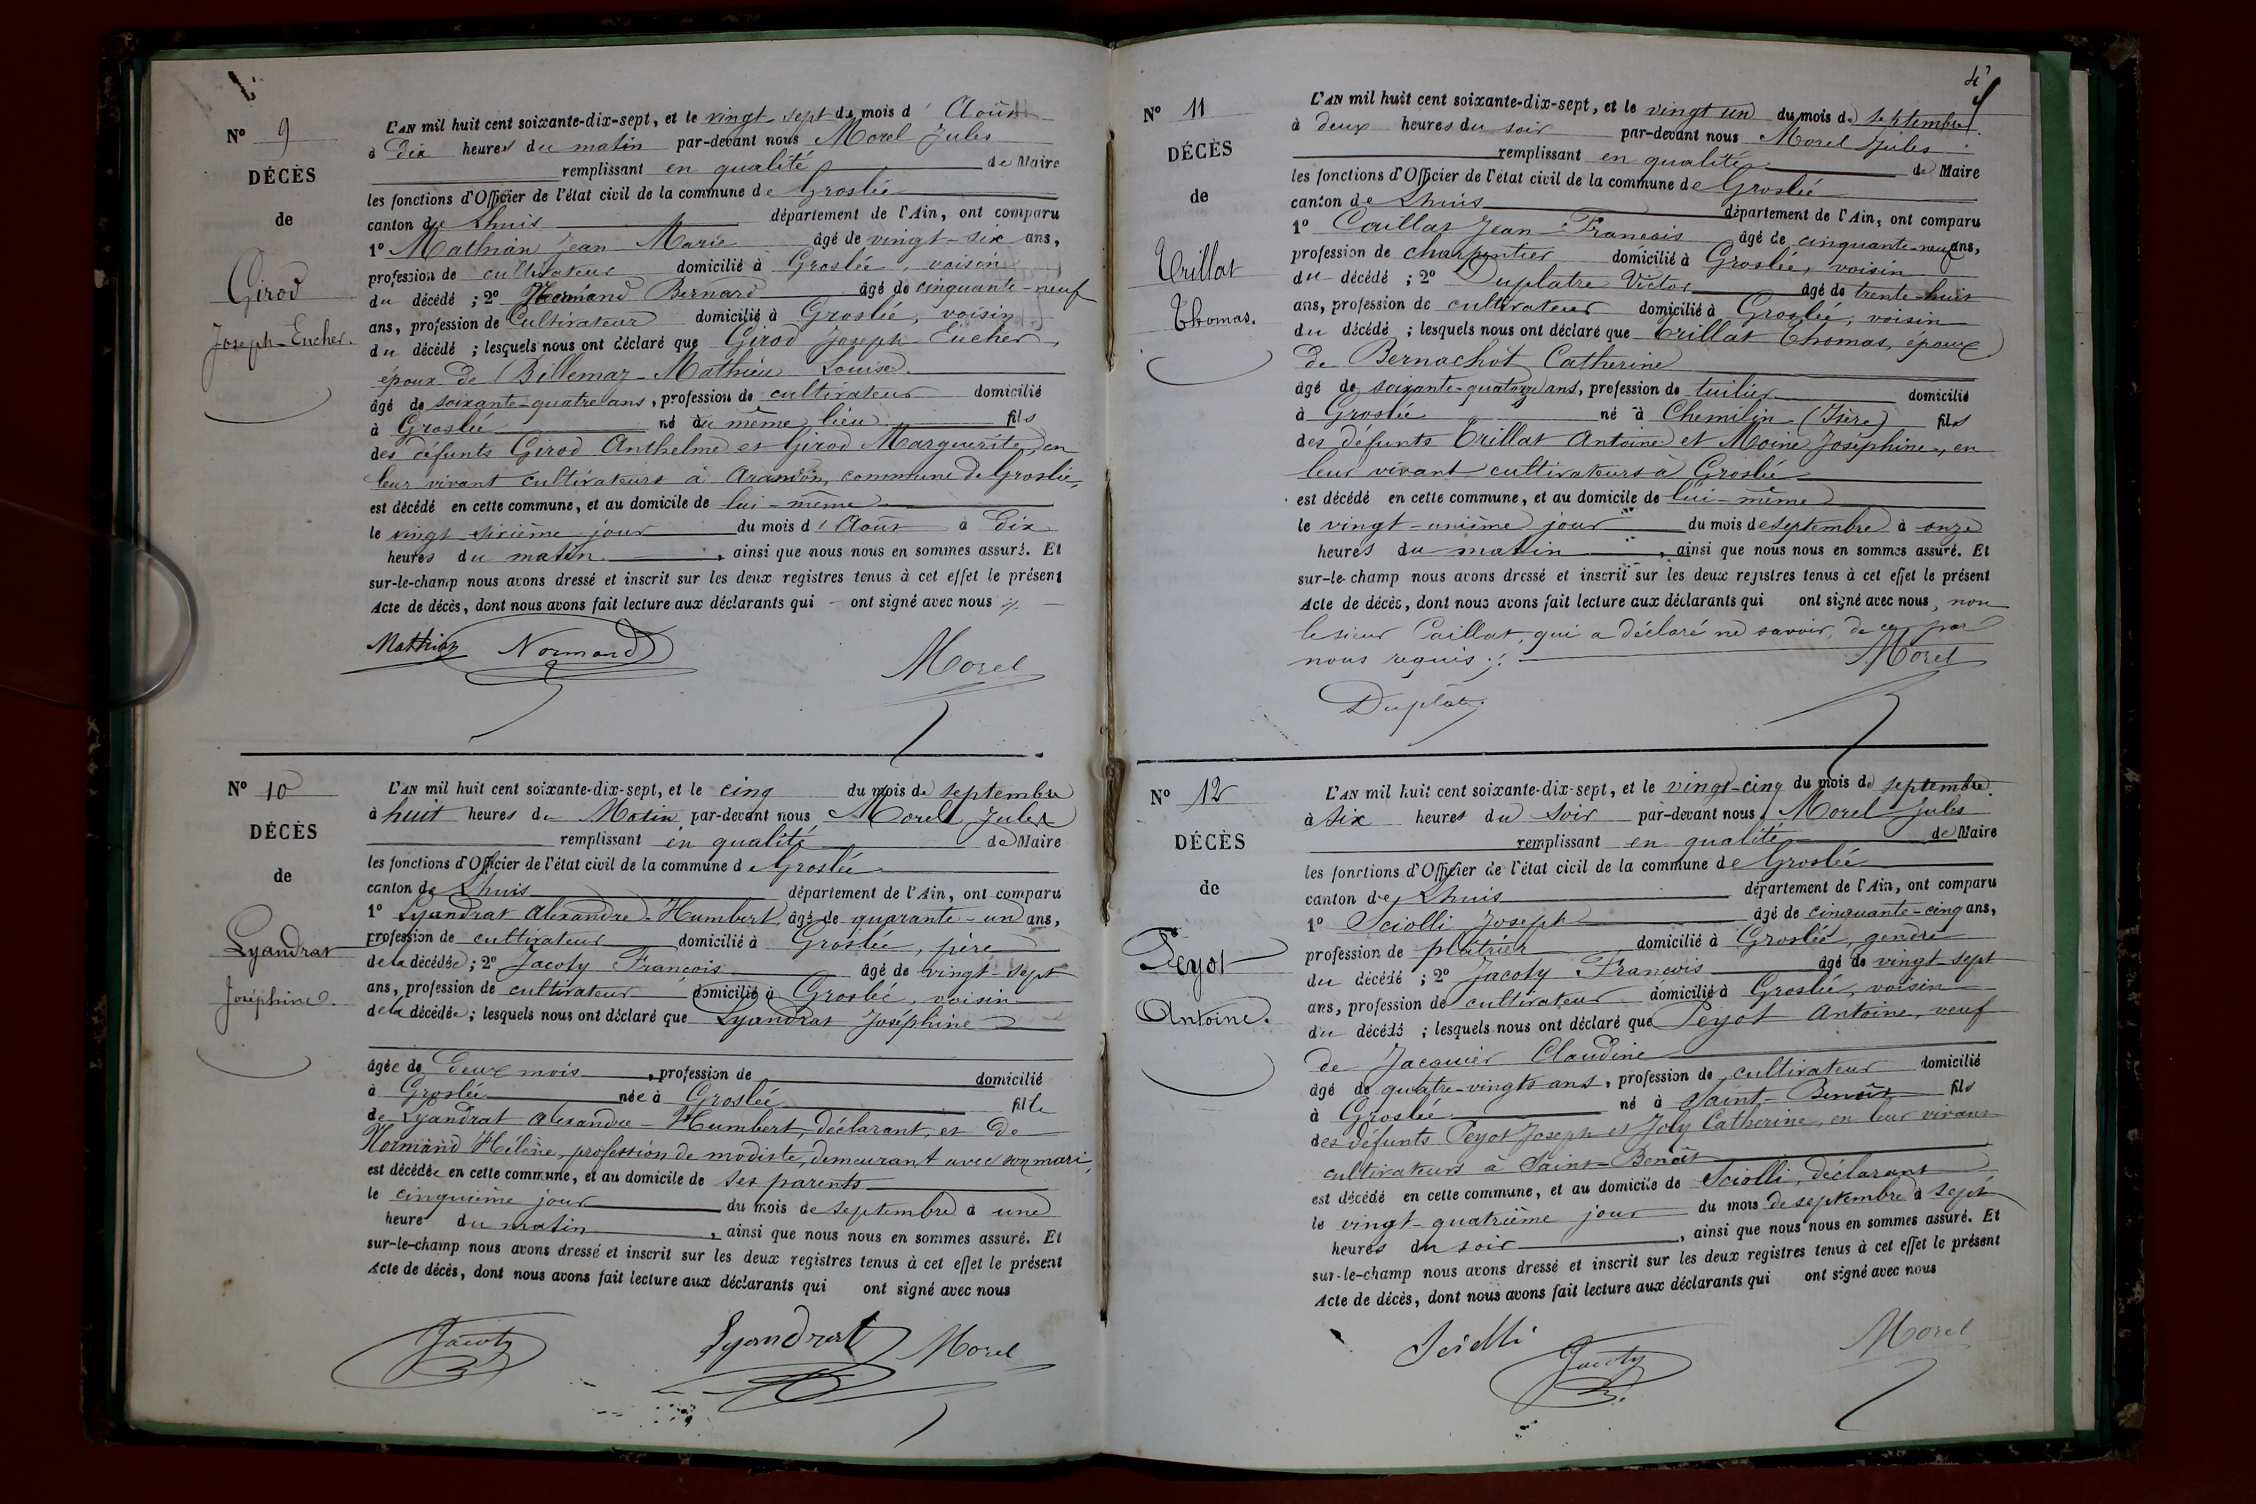 Nº 9
DÉCÈS
de
Girod
Joseph-Eucher.
L'AN mil huit cent soixante-dix-sept, et le vingt-sept du mois d'Août
à dix heures du matin par-devant nous Morel Jules
remplissant en qualité de Maire
les fonctions d'Officier de l'état civil de la commune de Groslée
canton de Lhuis département de l'Ain, ont comparu
1º Mathian Jean Marie âgé de vingt-six ans,
profession de cultivateur domicilié à Groslée, voisin
du décédé ; 2º Normand Bernard âgé de cinquante-neuf
ans, profession de Cultivateur domicilié à Groslée, voisin
du décédé ; lesquels nous ont déclaré que Girod Joseph Eucher,
époux de Billemaz-Mathieu Louise
âgé de soixante-quatre ans, profession de cultivateur domicilié
à Groslée né au même lieu fils
des défunts Girod Anthelme et Girod Marguerite, en
leur vivant cultivateurs à Arandon, commune de Groslée,
est décédé en cette commune, et au domicile de lui-même
le vingt-sixième jour du mois d'Août à dix
heures du matin, ainsi que nous nous en sommes assuré. Et
sur-le-champ nous avons dressé et inscrit sur les deux registres tenus à cet effet le présent
Acte de décès, dont nous avons fait lecture aux déclarants qui ont signé avec nous
Mathian Normand Morel
Nº 10
DÉCÈS
de
Lyandrat
Joséphine.
L'AN mil huit cent soixante-dix-sept, et le cinq du mois de septembre
à huit heures du Matin par-devant nous Morel Jules
remplissant en qualité de Maire
les fonctions d'Officier de l'état civil de la commune de Groslée
canton de Lhuis département de l'Ain, ont comparu
1º Lyandrat Alexandre-Humbert âgé de quarante-un ans,
profession de cultivateur domicilié à Groslée, père
de la décédée ; 2º Jacoty François âgé de vingt-sept
ans, profession de cultivateur domicilié à Groslée, voisin
de la décédée ; lesquels nous ont déclaré que Lyandrat Joséphine
âgée de deux mois, profession de domicilié
à Groslée née à Groslée fille
de Lyandrat Alexandre-Humbert, déclarant, et de
Normand Hélène, profession de modiste, demeurant avec son mari,
est décédée en cette commune, et au domicile de ses parents
le cinquième jour du mois de septembre à une
heure du matin, ainsi que nous nous en sommes assuré. Et
sur-le-champ nous avons dressé et inscrit sur les deux registres tenus à cet effet le présent
Acte de décès, dont nous avons fait lecture aux déclarants qui ont signé avec nous
Jacoty Lyandrat Morel
Nº 11
DÉCÈS
de
Trillat
Thomas.
L'AN mil huit cent soixante-dix-sept, et le vingt un du mois de septembre
à deux heures du soir par-devant nous Morel Jules
remplissant en qualité de Maire
les fonctions d'Officier de l'état civil de la commune de Groslée
canton de Lhuis département de l'Ain, ont comparu
1º Caillat Jean-François âgé de cinquante-neuf ans,
profession de charpentier domicilié à Groslée, voisin
du décédé ; 2º Duplatre Victor âgé de trente-huit
ans, profession de cultivateur domicilié à Groslée, voisin
du décédé ; lesquels nous ont déclaré que Trillat Thomas, époux
de Bernachot Catherine
âgé de soixante-quatorze ans, profession de tuilier domicilié
à Groslée né à Chemilin (Isère) fils
des défunts Trillat Antoine et Moine Joséphine, en
leur vivant cultivateurs à Groslée
est décédé en cette commune, et au domicile de lui-même
le vingt-unième jour du mois de septembre à onze
heures du matin, ainsi que nous nous en sommes assuré. Et
sur-le-champ nous avons dressé et inscrit sur les deux registres tenus à cet effet le présent
Acte de décès, dont nous avons fait lecture aux déclarants qui ont signé avec nous, non
le sieur Caillat, qui a déclaré ne savoir, de ce par
nous requis.
Morel
Duplatre
Nº 12
DÉCÈS
de
Peyot
Antoine.
L'AN mil huit cent soixante-dix-sept, et le vingt-cinq du mois de septembre.
à six heures du soir par-devant nous Morel Jules
remplissant en qualité de Maire
les fonctions d'Officier de l'état civil de la commune de Groslée
canton de Lhuis département de l'Ain, ont comparu
1º Sciolli Joseph âgé de cinquante-cinq ans,
profession de plâtrier domicilié à Groslée, gendre
du décédé ; 2º Jacoty François âgé de vingt-sept
ans, profession de cultivateur domicilié à Groslée, voisin
du décédé ; lesquels nous ont déclaré que Peyot Antoine, veuf
de Jacquier Claudine
âgé de quatre-vingts ans, profession de cultivateur domicilié
à Groslée né à Saint-Benoît fils
des défunts Peyot Joseph et Joly Catherine, en leur vivant
cultivateurs à Saint-Benoît
est décédé en cette commune, et au domicile de Sciolli, déclarant
le vingt-quatrième jour du mois de septembre à sept
heures du soir, ainsi que nous nous en sommes assuré. Et
sur-le-champ nous avons dressé et inscrit sur les deux registres tenus à cet effet le présent
Acte de décès, dont nous avons fait lecture aux déclarants qui ont signé avec nous
Sciolli Jacoty Morel